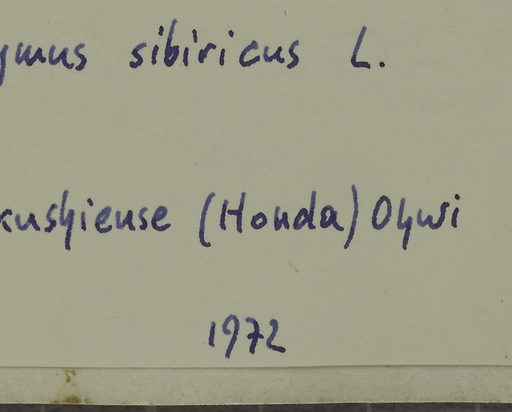 ymus sibiricus L.
kushiense (Honda) Ohwi
1972